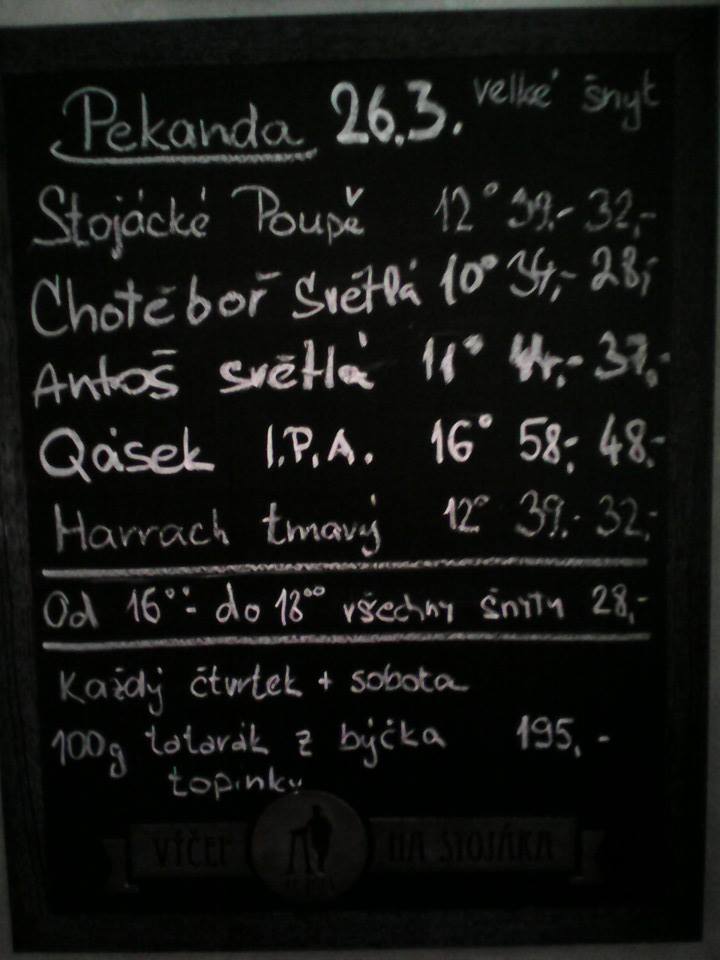 Pekanda 26.3. velké šnyt
Stojácké Poupě 12° 39.- 32,-
Chotěboř Světlá 10° 34,- 28,-
Antoš světlá 11° 44.- 37,-
Qásek I.P.A. 16° 58,- 48,-
Harrach tmavý 12° 39.- 32,-
Od 16°°- do 18°° všechny šnity 28,-
Každý čtvrtek + sobota
100g tatarák z býčka 195,-
topinky
VÝČEP NA STOJÁKA